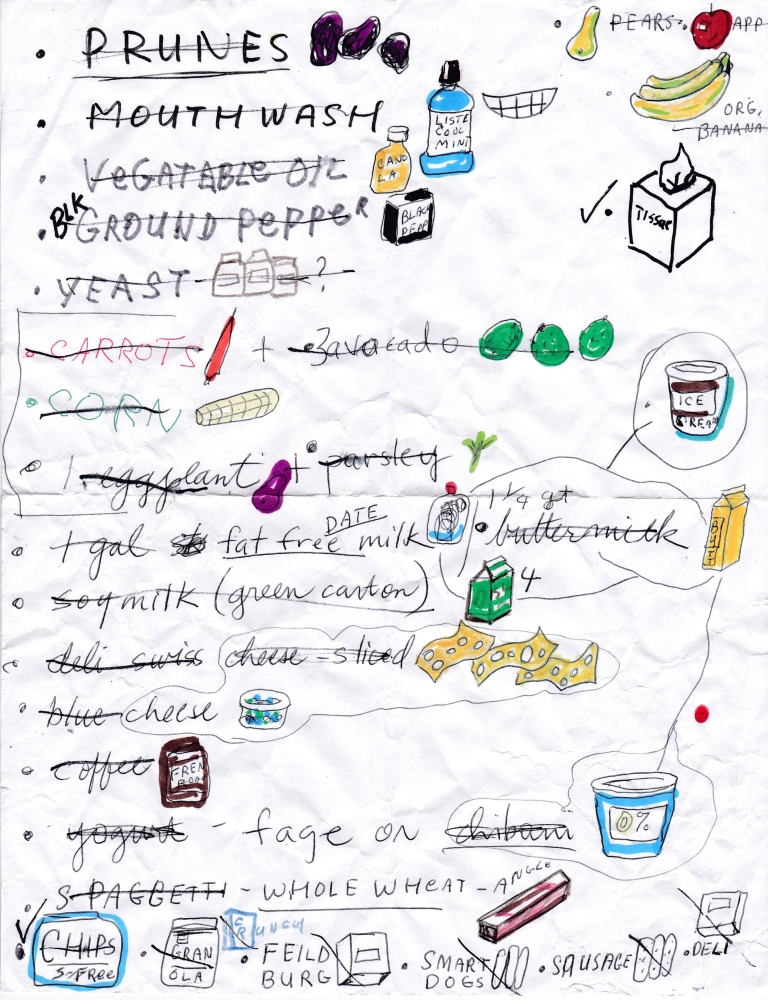 PRUNES
PEARS
APP
MOUTHWASH
LISTE
COOL
MINT
ORG.
BANANA
VEGATABLE OIL
CANO
LA
BLK
GROUND PEPPER
BLAC
PEPP
TISSUE
YEAST ?
CARROTS + 3 avocado
CORN
ICE
CREAM
1 eggplant + parsley
1 gal fat free milk
DATE
1 1/4 qt
buttermilk
BUTT
soy milk (green carton) 4
deli swiss cheese - sliced
blue cheese
coffee
FREN
yogurt - fage or chibani
0%
SPAGGETTI - WHOLE WHEAT - ANGLE
CHIPS
S-FREE
GRAN
OLA
CRUNCH
FEILD
BURG
SMART
DOGS
SAUSAGE
DELI